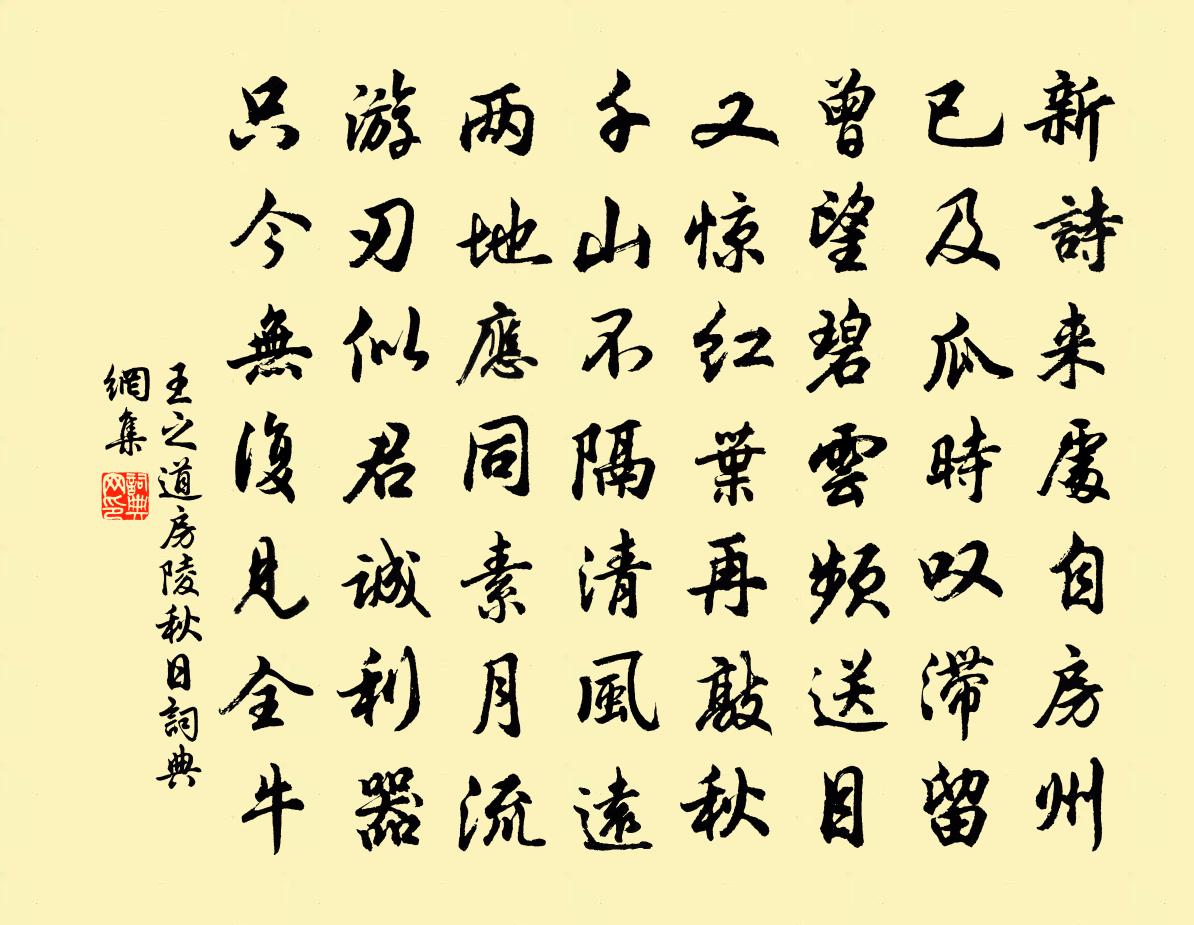 新詩来處自房州
已及瓜時叹滞留
曾望碧雲频送目
又惊红葉再敲秋
千山不隔清風遠
两地應同素月流
游刃似君誠利器
只今無復見全牛
王之道房陵秋日詞典
網集
詞典
网印